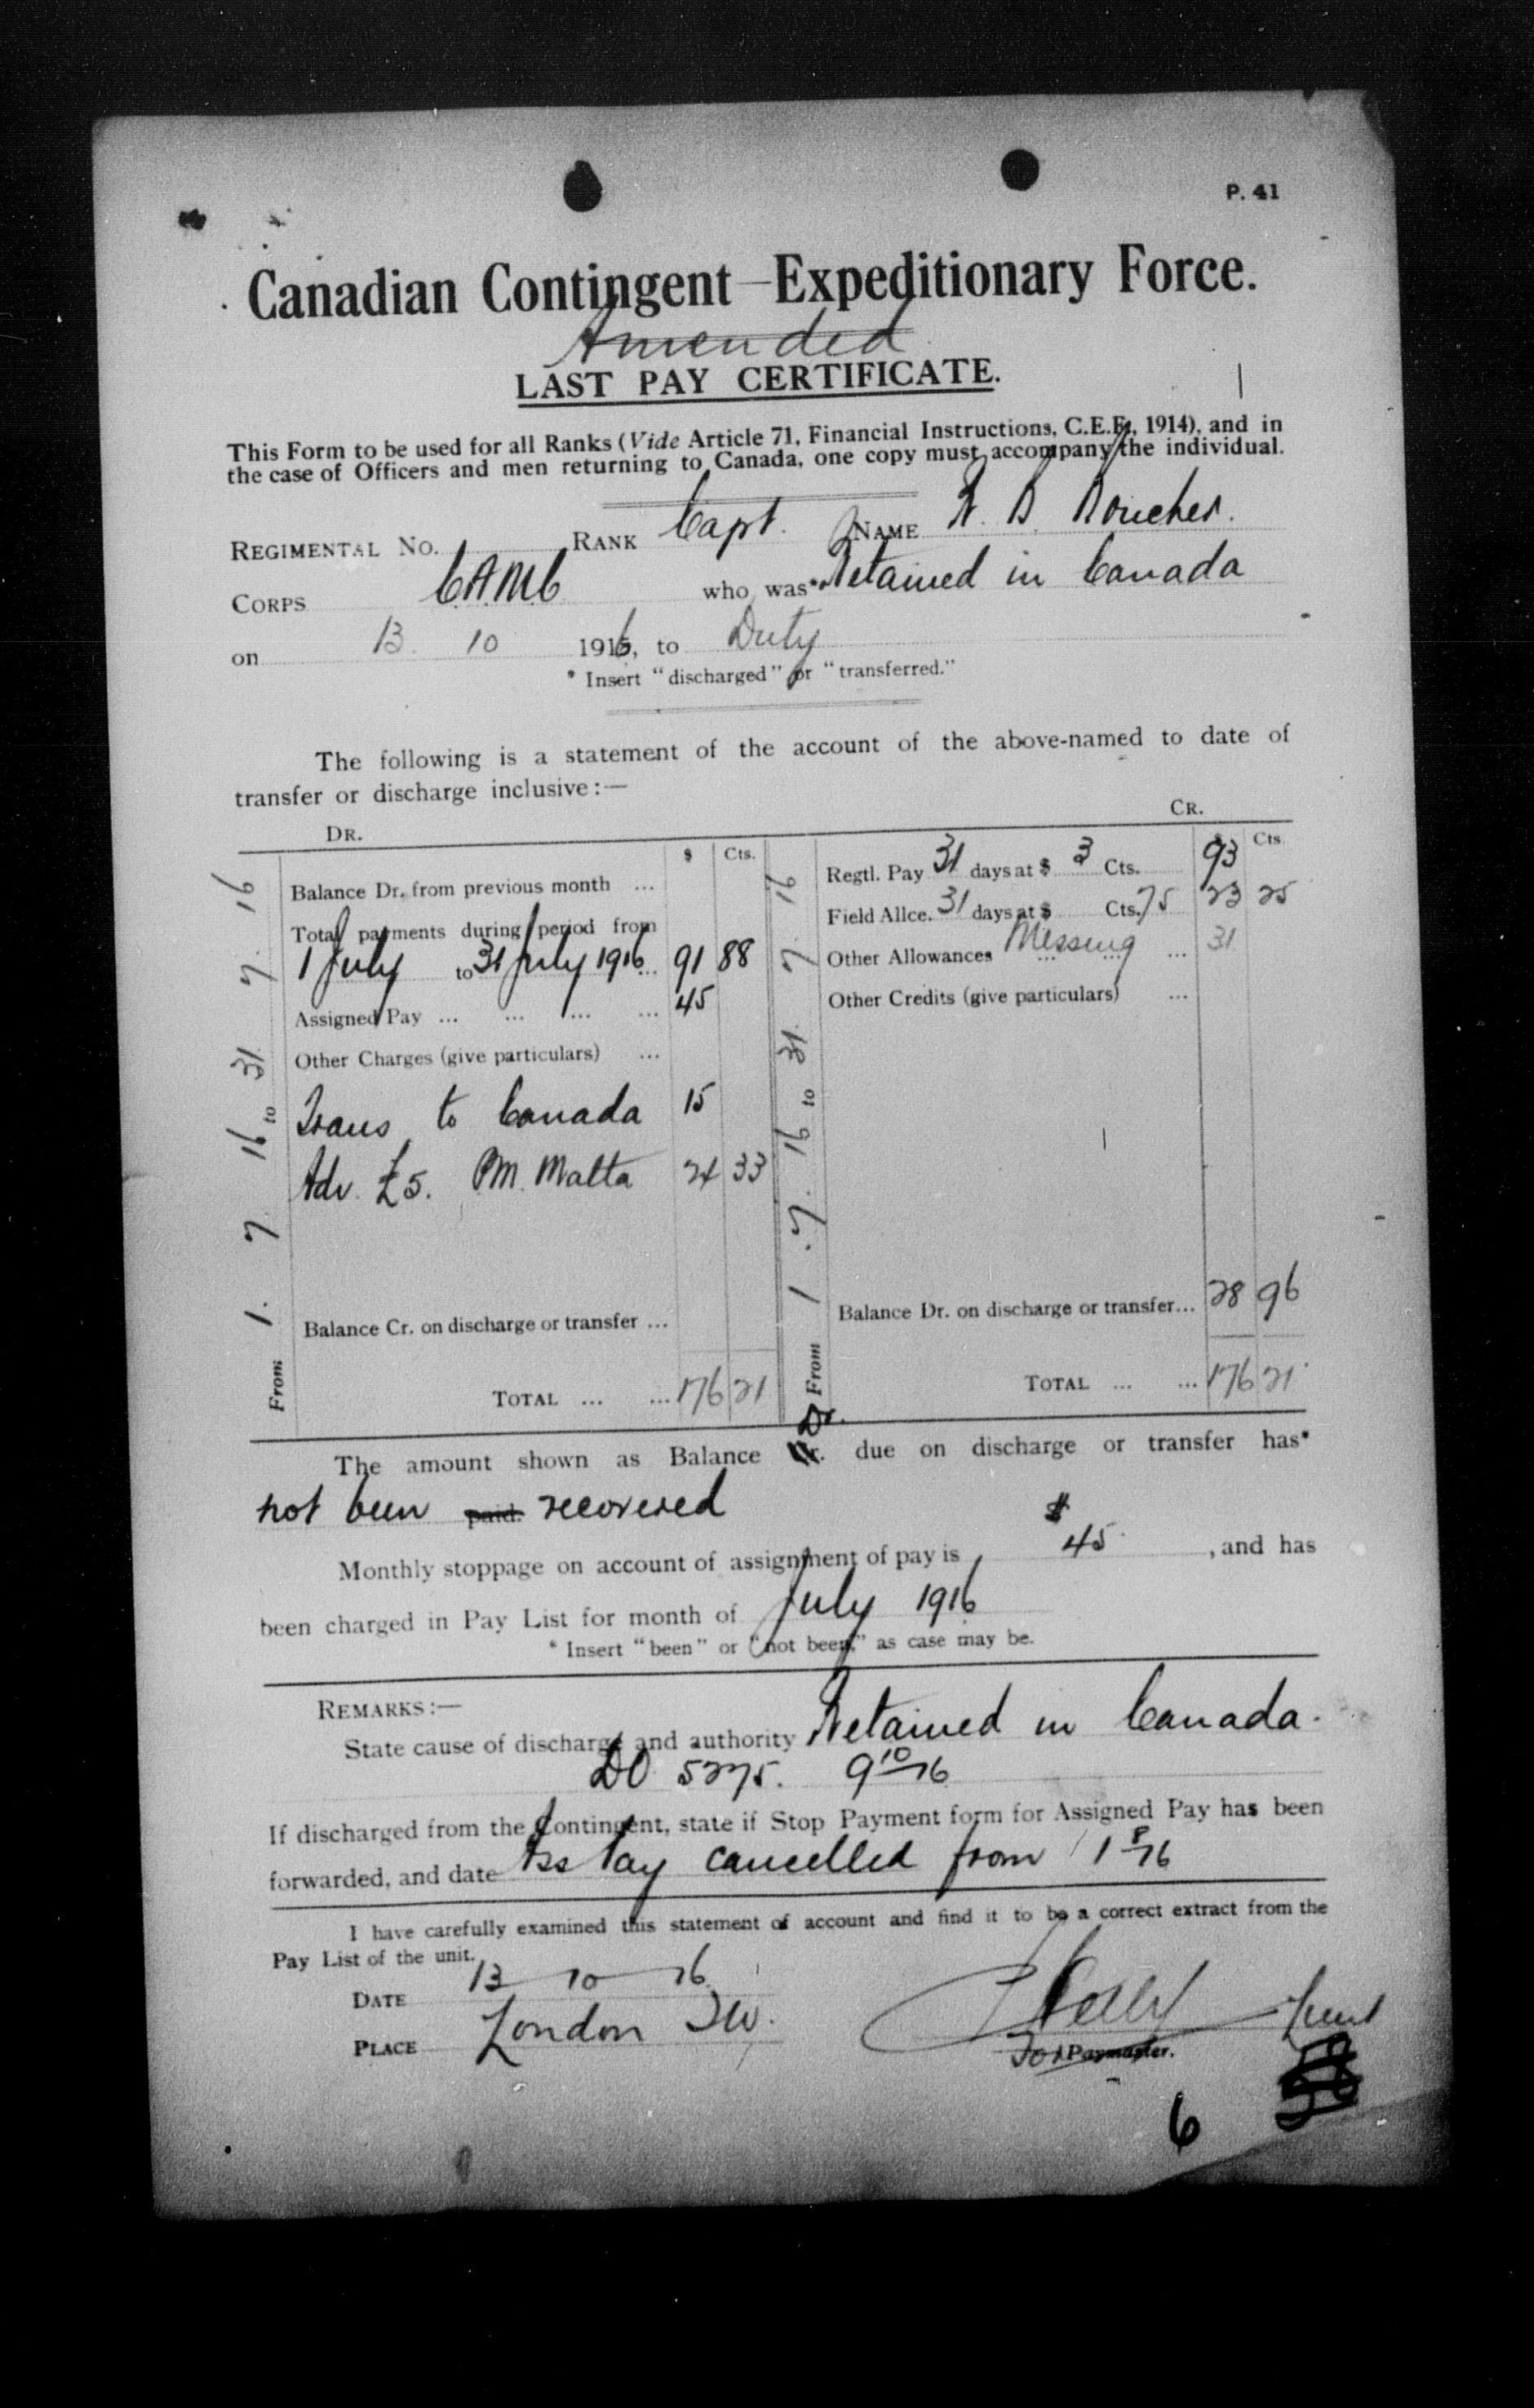 P. 41
Canadian Contingent Expeditionary Force.
Amended
LAST PAY CERTIFICATE.
This Form to be used for all Ranks (Vide Article 71, Financial Instructions, C.E.F., 1914), and in
the case of Officers and men returning to Canada, one copy must accompany the individual.
REGIMENTAL NO. RANK Capt. NAME
CORPS C.A.M.C who was* Retained in Canada
on 13 10 1916, to Duty
* Insert "discharged" or "transferred."
The following is a statement of the account of the above-named to date of
transfer or discharge inclusive:—
DR. CR.
From 1. 7 16 to 31 7. 16
$ Cts.
Balance Dr. from previous month ...
Total payments during period from
1 July to 31 July 1916 ... 91 88
Assigned Pay ... ... ... ... 45
Other Charges (give particulars) ...
Trans to Canada 15
Adv. £5. P.M. Malta 24 33
Balance Cr. on discharge or transfer ...
TOTAL ... ... 176 21
From 1 7. 16 to 31. 7 16
$ Cts.
Regtl. Pay 31 days at $ 3 Cts. 93
Field Allce. 31 days at $ Cts. 75 23 25
Other Allowances Messing ... 31
Other Credits (give particulars) ...
Balance Dr. on discharge or transfer... 28 96
TOTAL ... ... 176 21
The amount shown as Balance Dr. due on discharge or transfer has*
not been paid. recovered
Monthly stoppage on account of assignment of pay is $ 45 , and has
been charged in Pay List for month of July 1916
* Insert "been" or "not been," as case may be.
REMARKS:—
State cause of discharge and authority Retained in Canada.
DO 5275. 9 10/16
If discharged from the Contingent, state if Stop Payment form for Assigned Pay has been
forwarded, and date Ass Pay cancelled from 1 8/16
I have carefully examined this statement of account and find it to be a correct extract from the
Pay List of the unit.
DATE 13 - 10 - 16
PLACE London SW.
Lieut
For Paymaster.
6